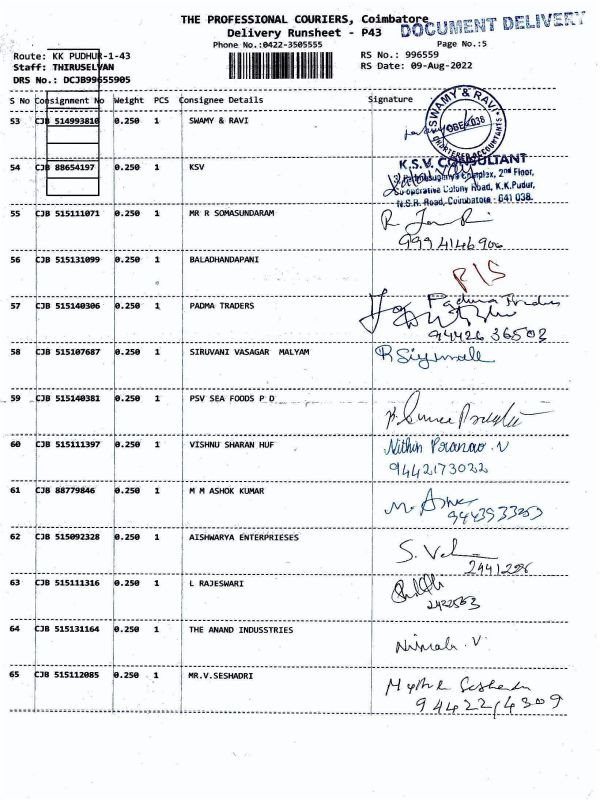 THE PROFESSIONAL COURIERS, Coimbatore
DOCUMENT DELIVERY
Delivery Runsheet - P43
Phone No.:0422-3505555
Page No.:5
Route: KK PUDHUR-1-43
RS No.: 996559
Staff: THIRUSELVAN
RS Date: 09-Aug-2022
DRS No.: DCJB99655905
S No Consignment No Weight PCS Consignee Details Signature
53 CJB 514993810 0.250 1 SWAMY & RAVI
SWAMY & RAVI
CHARTERED ACCOUNTANTS
54 CJB 88654197 0.250 1 KSV
K.S.V. CONSULTANT
Complex, 2nd Floor,
Co-operative Colony Road, K.K.Pudur,
N.S.R. Road, Coimbatore - 641 038.
55 CJB 515111071 0.250 1 MR R SOMASUNDARAM
9994146906
56 CJB 515131099 0.250 1 BALADHANDAPANI
P/S
57 CJB 515140306 0.250 1 PADMA TRADERS
Padma Traders
94426 36502
58 CJB 515107687 0.250 1 SIRUVANI VASAGAR MALYAM
59 CJB 515140381 0.250 1 PSV SEA FOODS P D
60 CJB 515111397 0.250 1 VISHNU SHARAN HUF
Nithin Pranav. V
9442173022
61 CJB 88779846 0.250 1 M M ASHOK KUMAR
62 CJB 515092328 0.250 1 AISHWARYA ENTERPRIESES
63 CJB 515111316 0.250 1 L RAJESWARI
64 CJB 515131164 0.250 1 THE ANAND INDUSSTRIES
Nirmala. V.
65 CJB 515112085 0.250 1 MR.V.SESHADRI